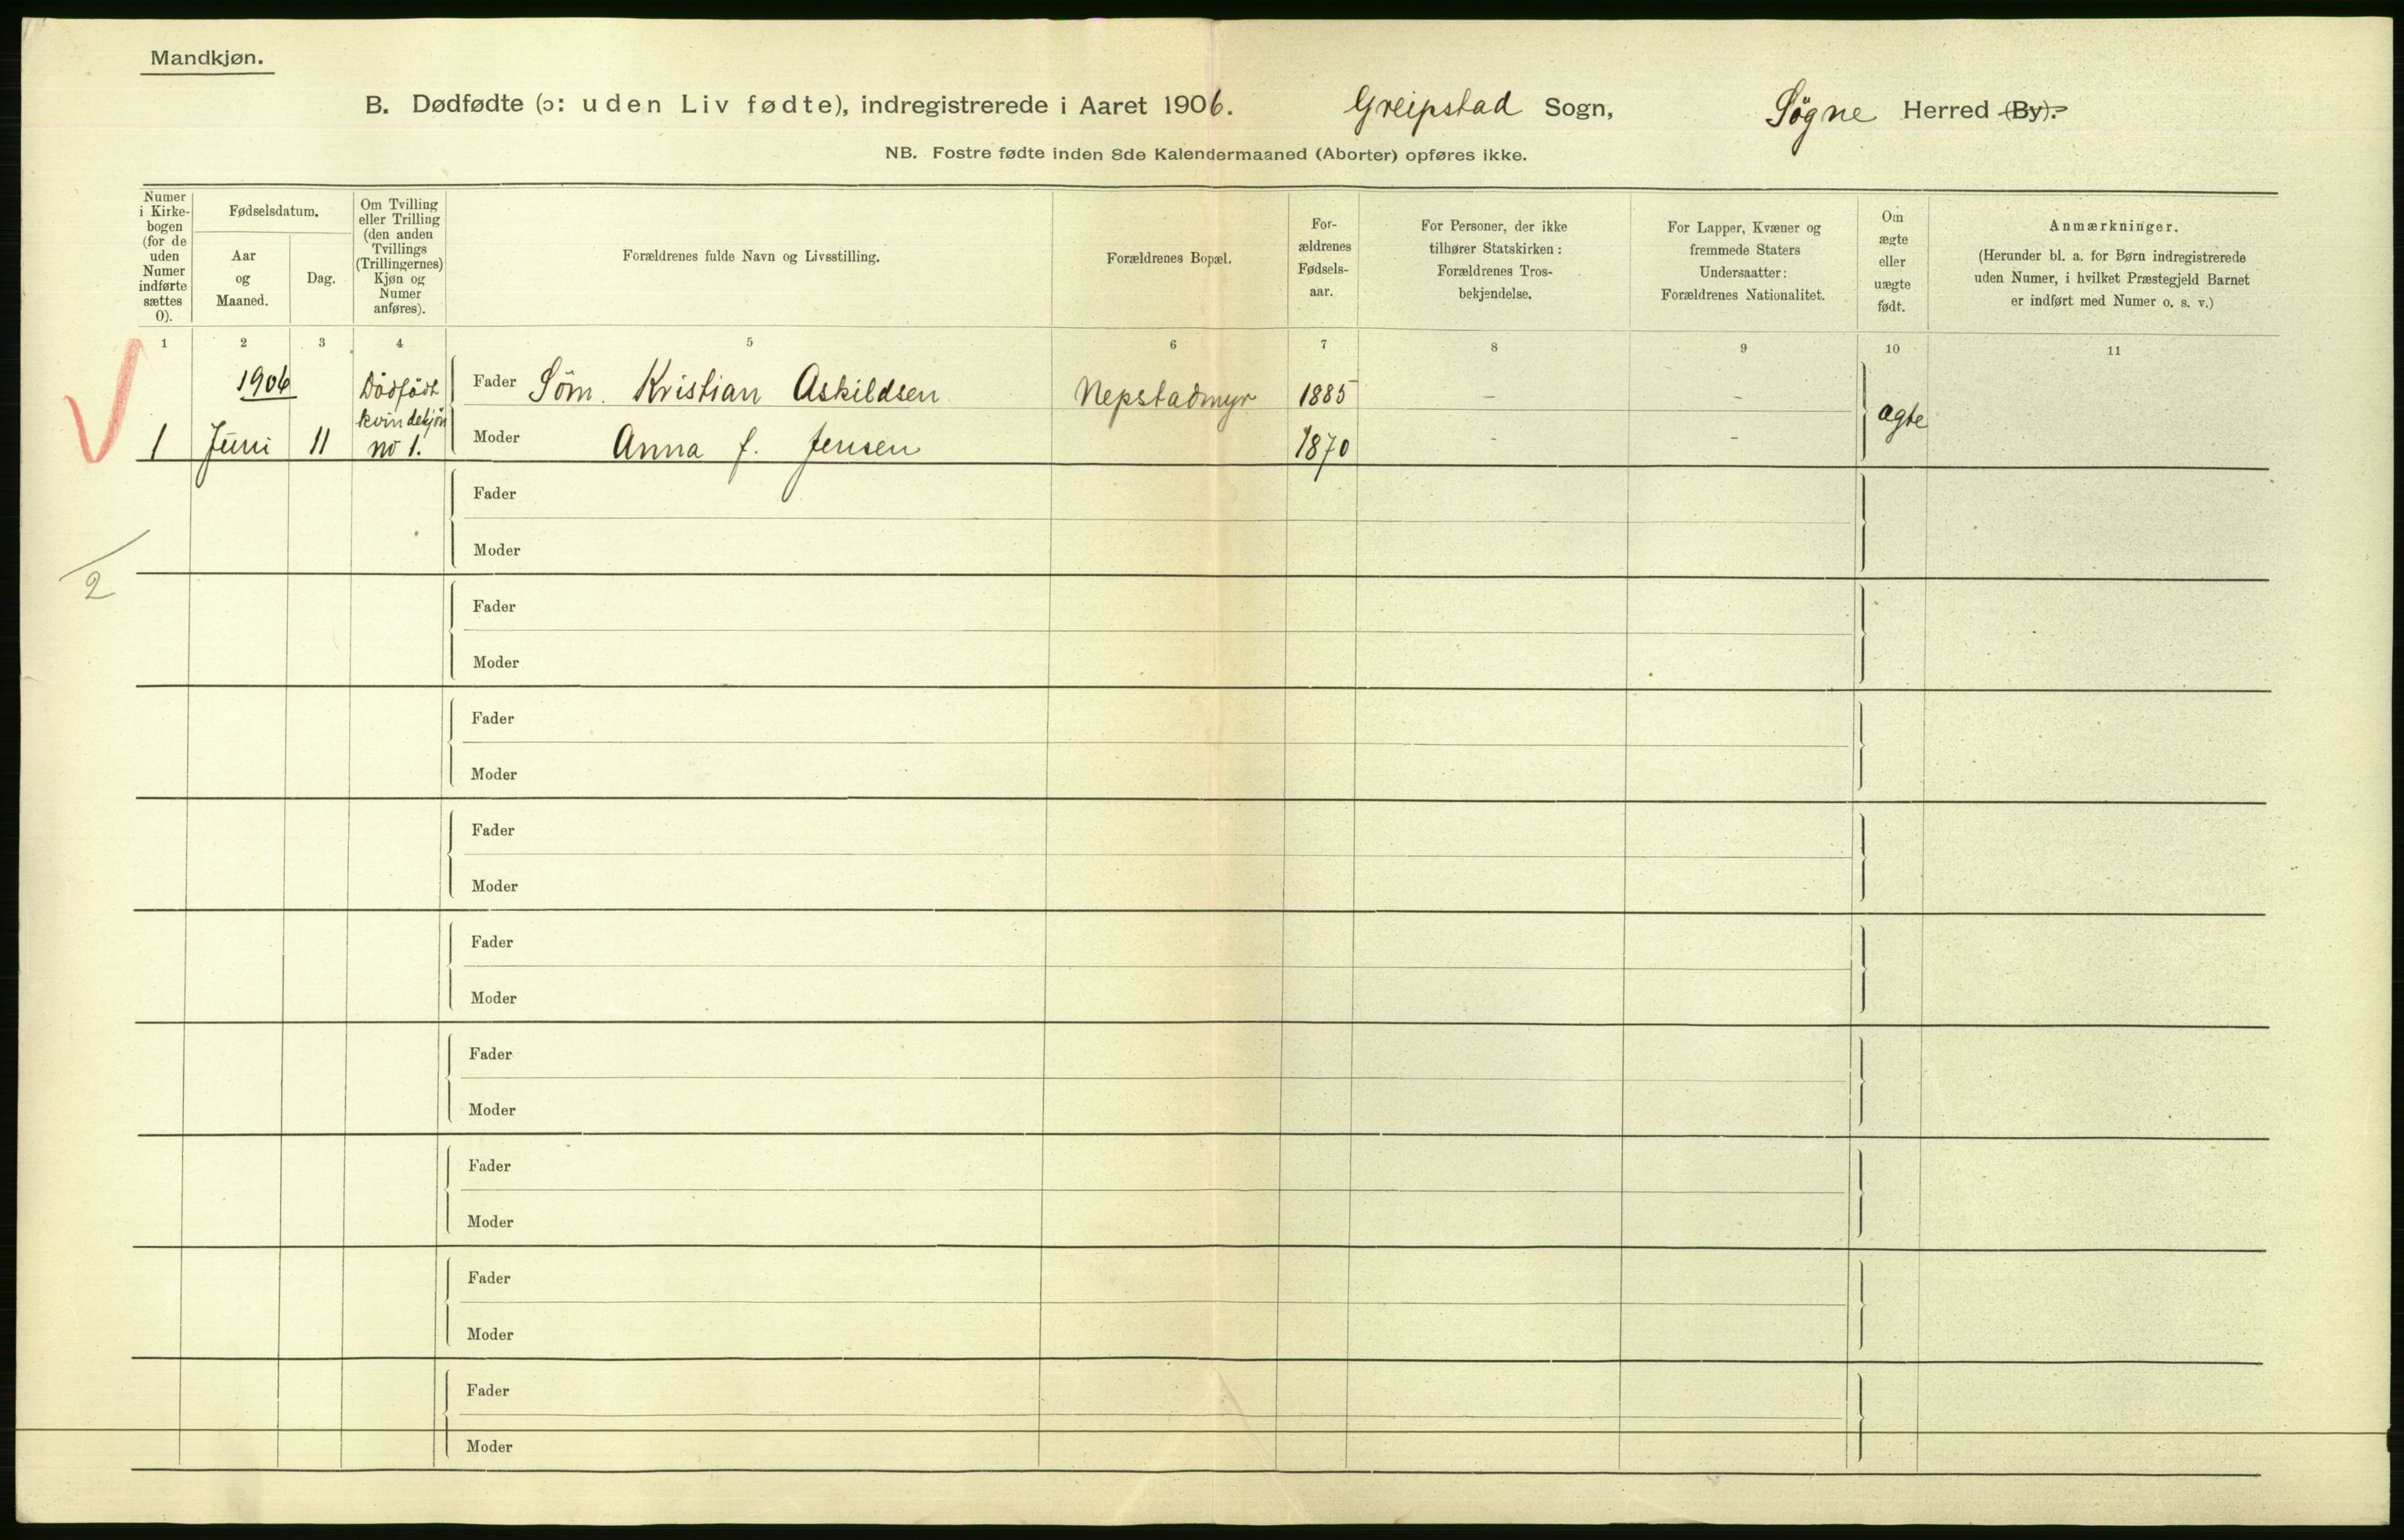 Mandkjøn.
B. Dødfødte (ɔ: uden Liv fødte), indregistrerede i Aaret 1906. Greipstad Sogn, Søgne Herred (By).
NB. Fostre fødte inden 8de Kalendermaaned (Aborter) opføres ikke.
Numer
i Kirke-
bogen
(for de
uden
Numer
indførte
sættes
0).
Fødselsdatum.
Aar
og
Maaned.
Dag.
Om Tvilling
eller Trilling
(den anden
Tvillings
(Trillingernes)
Kjøn og
Numer
anføres).
Forældrenes fulde Navn og Livsstilling.
Forældrenes Bopæl.
For-
ældrenes
Fødsels-
aar.
For Personer, der ikke
tilhører Statskirken:
Forældrenes Tros-
bekjendelse.
For Lapper, Kvæner og
fremmede Staters
Undersaatter:
Forældrenes Nationalitet.
Om
ægte
eller
uægte
født.
Anmærkninger.
(Herunder bl. a. for Børn indregistrerede
uden Numer, i hvilket Præstegjeld Barnet
er indført med Numer o. s. v.)
1 2 3 4 5 6 7 8 9 10 11
1906 Dødfødt Fader Söm. Kristian Askildsen Nepstadmyr 1885 - -
kvindekjøn ægte
1 Juni 11 no 1. Moder Anna f. Jensen 1870 - -
Fader
Moder
2
Fader
Moder
Fader
Moder
Fader
Moder
Fader
Moder
Fader
Moder
Fader
Moder
Fader
Moder
Fader
Moder